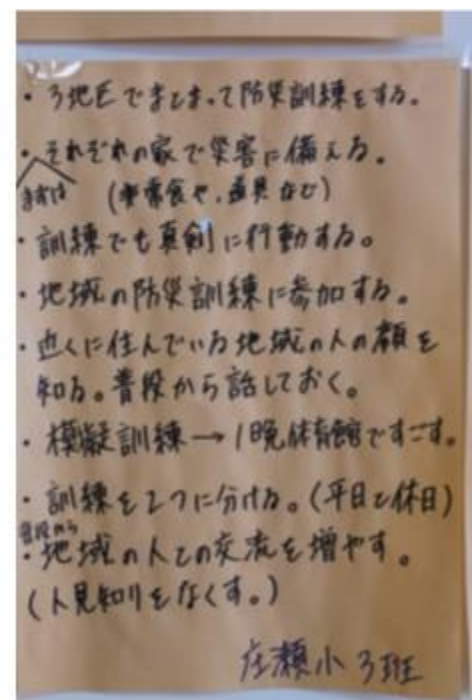 ・3地区でまとまって防災訓練をする。
・それぞれの家で災害に備える。
まずは (非常食や、道具など)
・訓練でも真剣に行動する。
・地域の防災訓練に参加する。
・近くに住んでいる地域の人の顔を
知る。普段から話しておく。
・模擬訓練→1晩体育館ですごす。
・訓練を2つに分ける。(平日と休日)
普段から
・地域の人との交流を増やす。
(人見知りをなくす。)
庄瀬小3班